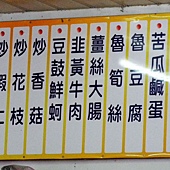 苦瓜鹹蛋
魯豆腐
魯筍絲
薑絲大腸
韭黃牛肉
豆鼓鮮蚵
炒香菇
炒花枝
炒蝦仁